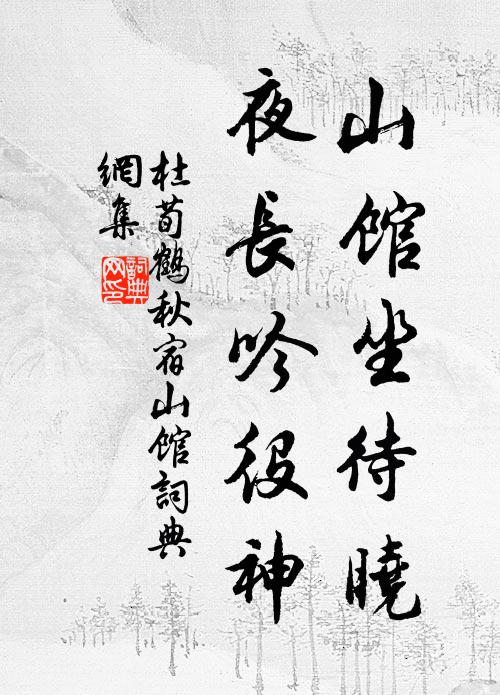 山館坐待曉
夜長吟役神
杜荀鶴秋宿山館詞典
網集
詞典网印